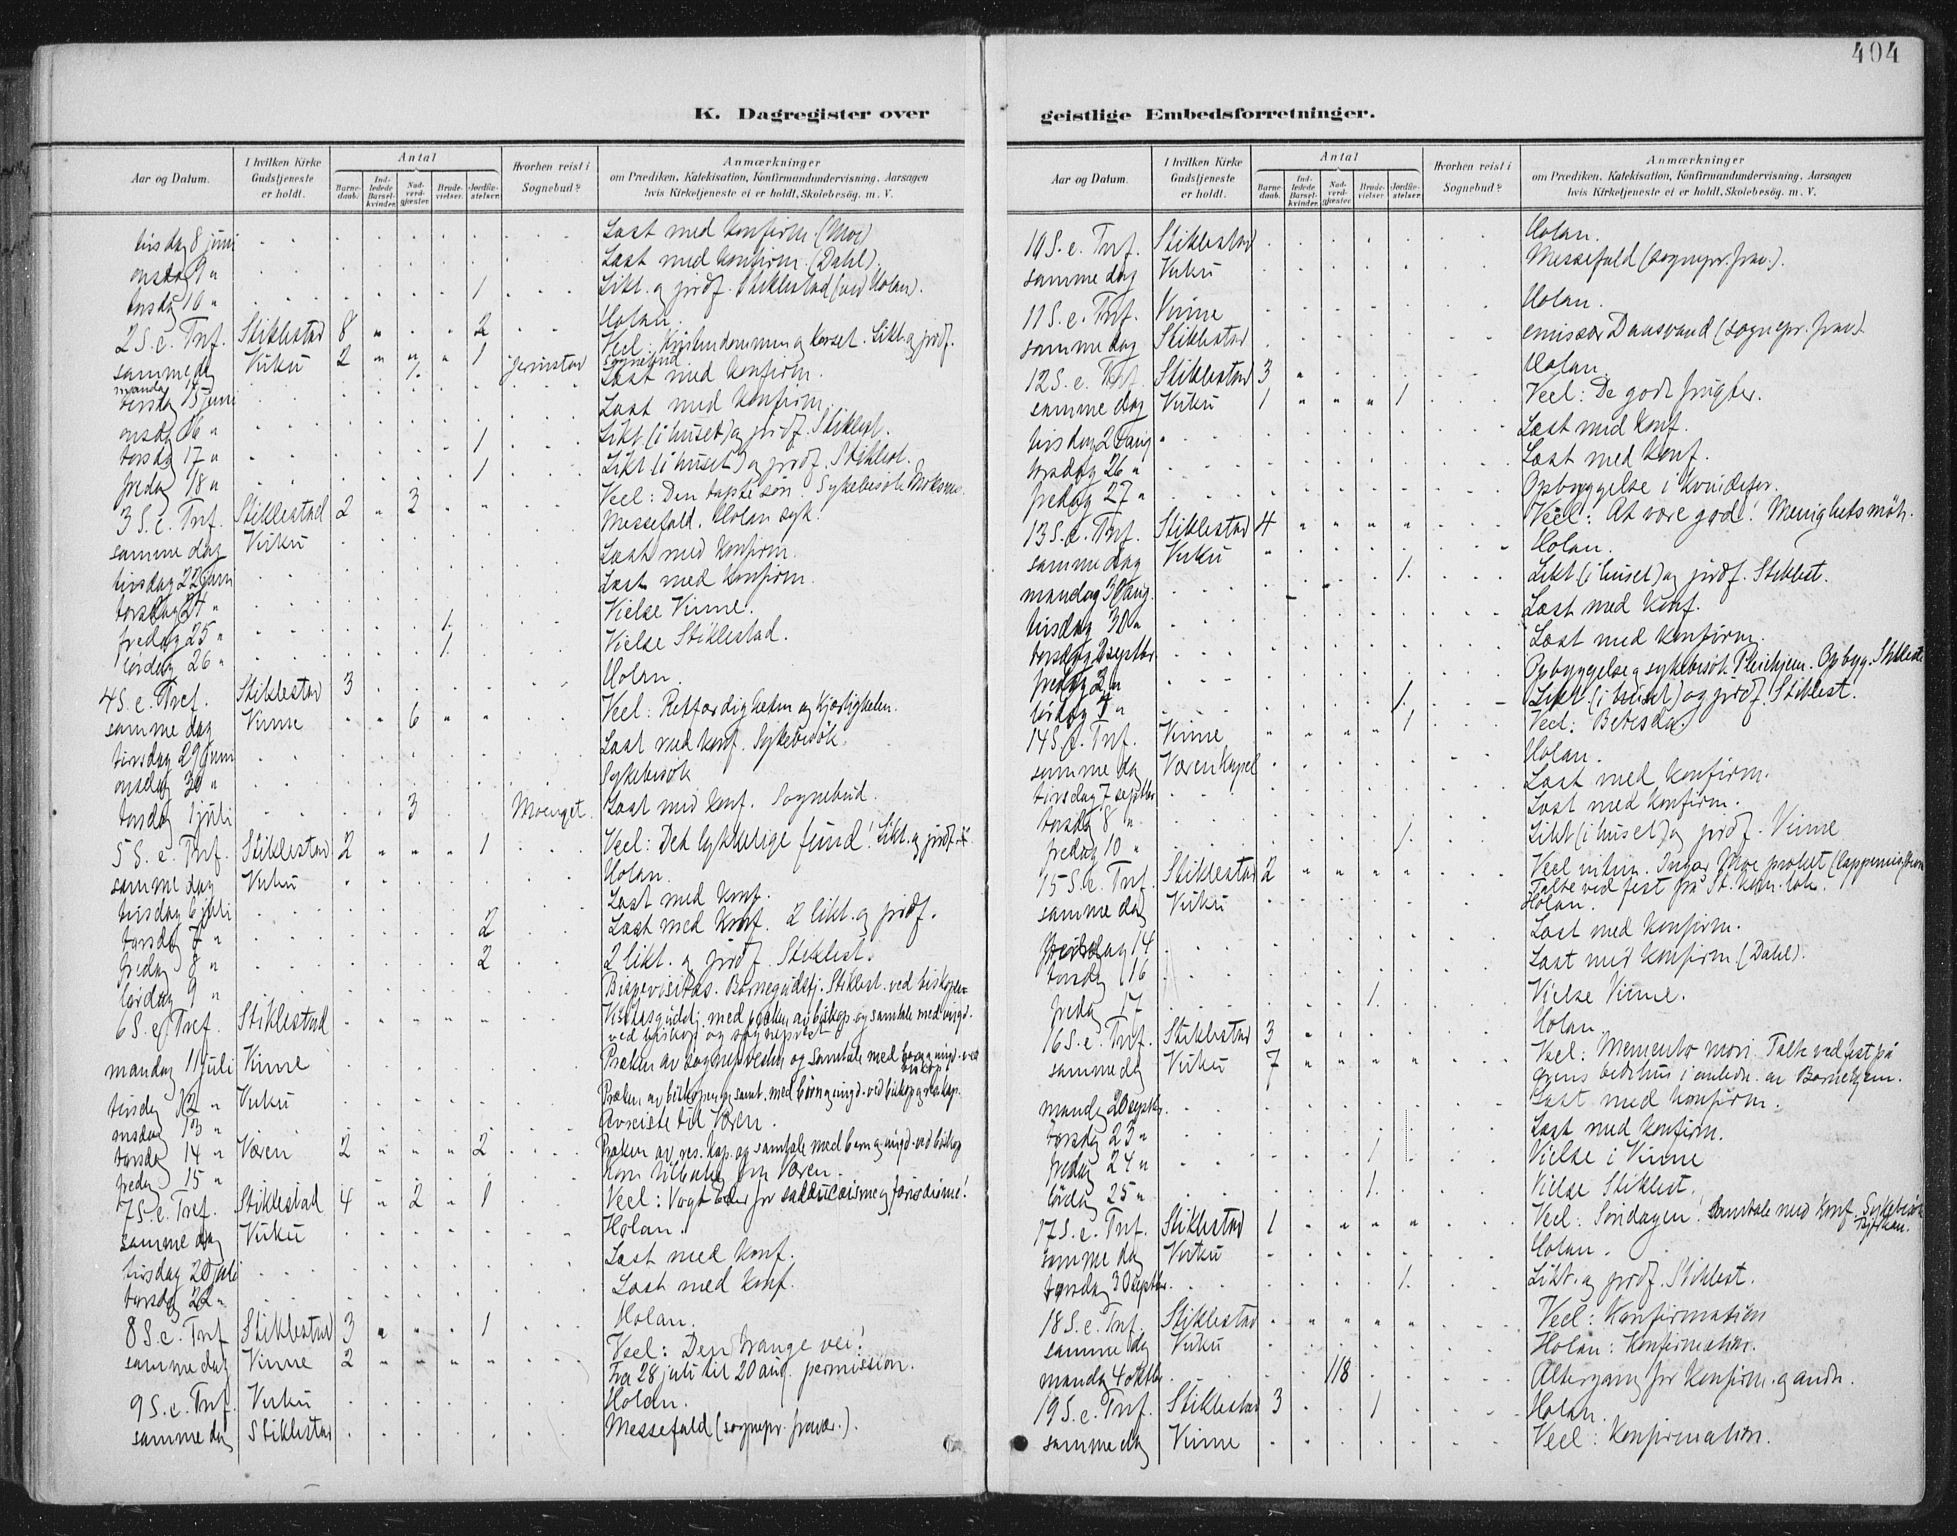 404
K. Dagregister over
geistlige Embedsforretninger.
Aar og Datum.
I hvilken Kirke Gudstjeneste er holdt.
Antal
Barne-daab.
Ind-ledede Barsel-kvinder.
Nad-verd-gjæster.
Brude-vielser.
Jordfæ-stelser.
Hvorhen reist i Sognebud?
Anmærkninger
om Prædiken, Katekisation, Konfirmandundervisning. Aarsagen
hvis Kirketjeneste ei er holdt, Skolebesøg. m. V.
tirsdag 8 juni Læst med konfirm. (Moe)
onsdag 9 " Læst med konfirm. (Dahl).
torsdag 10 " 1 Likt. og jordf. Stiklestad (ved Holan).
2 S. e. Tref. Stiklestad 8 " 2 Holan.
samme dag Vuku 2 " " " 1 Veel: og korset. Likt. og jordf.
mandag 14 sognebud
tirsdag 15 juni Læst med konfirm.
onsdag 16 " Læst med konfirm.
torsdag 17 " 1 Likt. (i huset) og jordf. Stiklest.
fredag 18 " 1 Likt. (i huset) og jordf. Stiklest.
3 S. e. Tref. Stiklestad 2 " 3 " " Veel: Den tapte søn. Sykebesøk
samme dag Vuku Messefald. Holan syk.
tirsdag 22 juni Læst med konfirm.
torsdag 24 " Læst med konfirm.
fredag 25 " 1 Vielse Vinne.
lørdag 26 " 1 Vielse Stiklestad.
4 S. e. Tref. Stiklestad 3 Holan.
samme dag Vinne " " 6 " " Veel: Retfærdigheten og kjærligheten.
tirsdag 29 juni Læst med konf. Sykebesøk.
onsdag 30 " Sykebesøk
torsdag 1 juli 3 Læst med konf. Sognebud.
5 S. e. Tref. Stiklestad 2 " " " 1 Veel: Det lykkelige fund! Likt. og jordf.
samme dag Vuku Holan.
tirsdag 6 juli Læst med konf.
torsdag 7 " 2 Læst med konf. 2 likt. og jordf.
fredag 8 " 2 2 likt. og jordf. Stiklest.
lørdag 9 " Bispevisitas. Barnegudstj. Stiklest. ved biskopen
6 S. e. Tref. Stiklestad Visitasgudstj. med præken av biskop og samtale med ungd.
ved biskop og sogneprest
mandag 11 juli Vinne Præken av sognepresten og samtale med barn og ungd. ved
biskop
tirsdag 12 " Vuku Præken av biskopen og samt. med barn og ungd. ved biskop og res. kap.
onsdag 13 " Avreiste til Væren.
torsdag 14 " Væren 2 " " " 2 Præken av res. kap. og samtale med barn og ungd. ved biskop
fredag 15 " Kom tilbake fra Væren.
7 S. e. Tref. Stiklestad 4 " 2 " 1 Veel: Vogt Eder for
samme dag Vuku Holan.
tirsdag 20 juli Læst med konf.
torsdag 22 " Læst med konf.
8 S. e. Tref. Stiklestad 3 " " " 1 Holan.
samme dag Vinne 2 " " " " Veel: Den trange vei!
Fra 28 juli til 20 aug. permission.
9 S. e. Tref. Vuku Holan.
samme dag Stiklestad Messefald (sognepr. fravær.).
Aar og Datum.
I hvilken Kirke Gudstjeneste er holdt.
Antal
Barne-daab.
Ind-ledede Barsel-kvinder.
Nad-verd-gjæster.
Brude-vielser.
Jordfæ-stelser.
Hvorhen reist i Sognebud?
Anmærkninger
om Prædiken, Katekisation, Konfirmandundervisning. Aarsagen
hvis Kirketjeneste ei er holdt, Skolebesøg. m. V.
10 S. e. Tref. Stiklestad Holan.
samme dag Vuku Messefald (sognepr. frav.).
11 S. e. Tref. Vinne Holan.
samme dag Stiklestad emissær (sognepr. frav.)
12 S. e. Tref. Stiklestad 3 " Holan.
samme dag Vuku 1 " " " 1 Veel: De gode frugter.
tirsdag 24 aug Læst med konf.
torsdag 26 " Læst med konf.
fredag 27 " Opbyggelse i kvindefor.
13 S. e. Tref. Stiklestad 4 " " " " Veel: At være god! Menighetsmøte.
samme dag Vuku Holan.
mandag 30 aug. 1 Likt. (i huset) og jordf. Stiklest.
tirsdag 30 " Læst med konf.
torsdag 2 septbr. Læst med konfirm.
fredag 3 " Opbyggelse og sykebesøk Pleiehjem. Opbyg. Stiklest
lørdag 4 " 1 Likt. (i huset) og jordf. Stiklest.
14 S. e. Tref. Vinne " " " " 1 Veel: Betesda
samme dag Væren Kapel Holan.
tirsdag 7 septbr Læst med konfirm.
torsdag 8 " Læst med konfirm.
fredag 10 " 1 Likt. (i huset) og jordf. Vinne
15 S. e. Tref. Stiklestad 2 " " " " Veel
Talte ved fest på
samme dag Vuku Holan.
14 Læst med konfirm.
torsdag 16 Læst med konfirm (Dahl).
fredag 17 1 Vielse Vinne.
16 S. e. Tref. Stiklestad 3 Holan
samme dag Vuku 7 " " " " Veel: Memento mori. Talte ved fest på
bedehus i anledn. av Barnehjem.
mandag 20 septbr. Læst med konfirm.
torsdag 23 " Læst med konfirm.
fredag 24 " 1 Vielse i Vinne
lørdag 25 " 1 Vielse Stiklest.
17 S. e. Tref. Stiklestad 1 " " " " Veel: Søndagen! Samtale med konf. Sykebesøk
samme dag Vuku Holan.
torsdag 30 septbr. 1 Likt. og jordf. Stiklest.
18 S. e. Tref. Stiklestad " " " " " Veel: Konfirmation
samme dag Vuku Holan: Konfirmation.
mandag 4 oktbr 118 Altergang for konfirm. og andre.
19 S. e. Tref. Stiklestad 3 1 Holan.
samme dag Vinne Veel: Konfirmation.